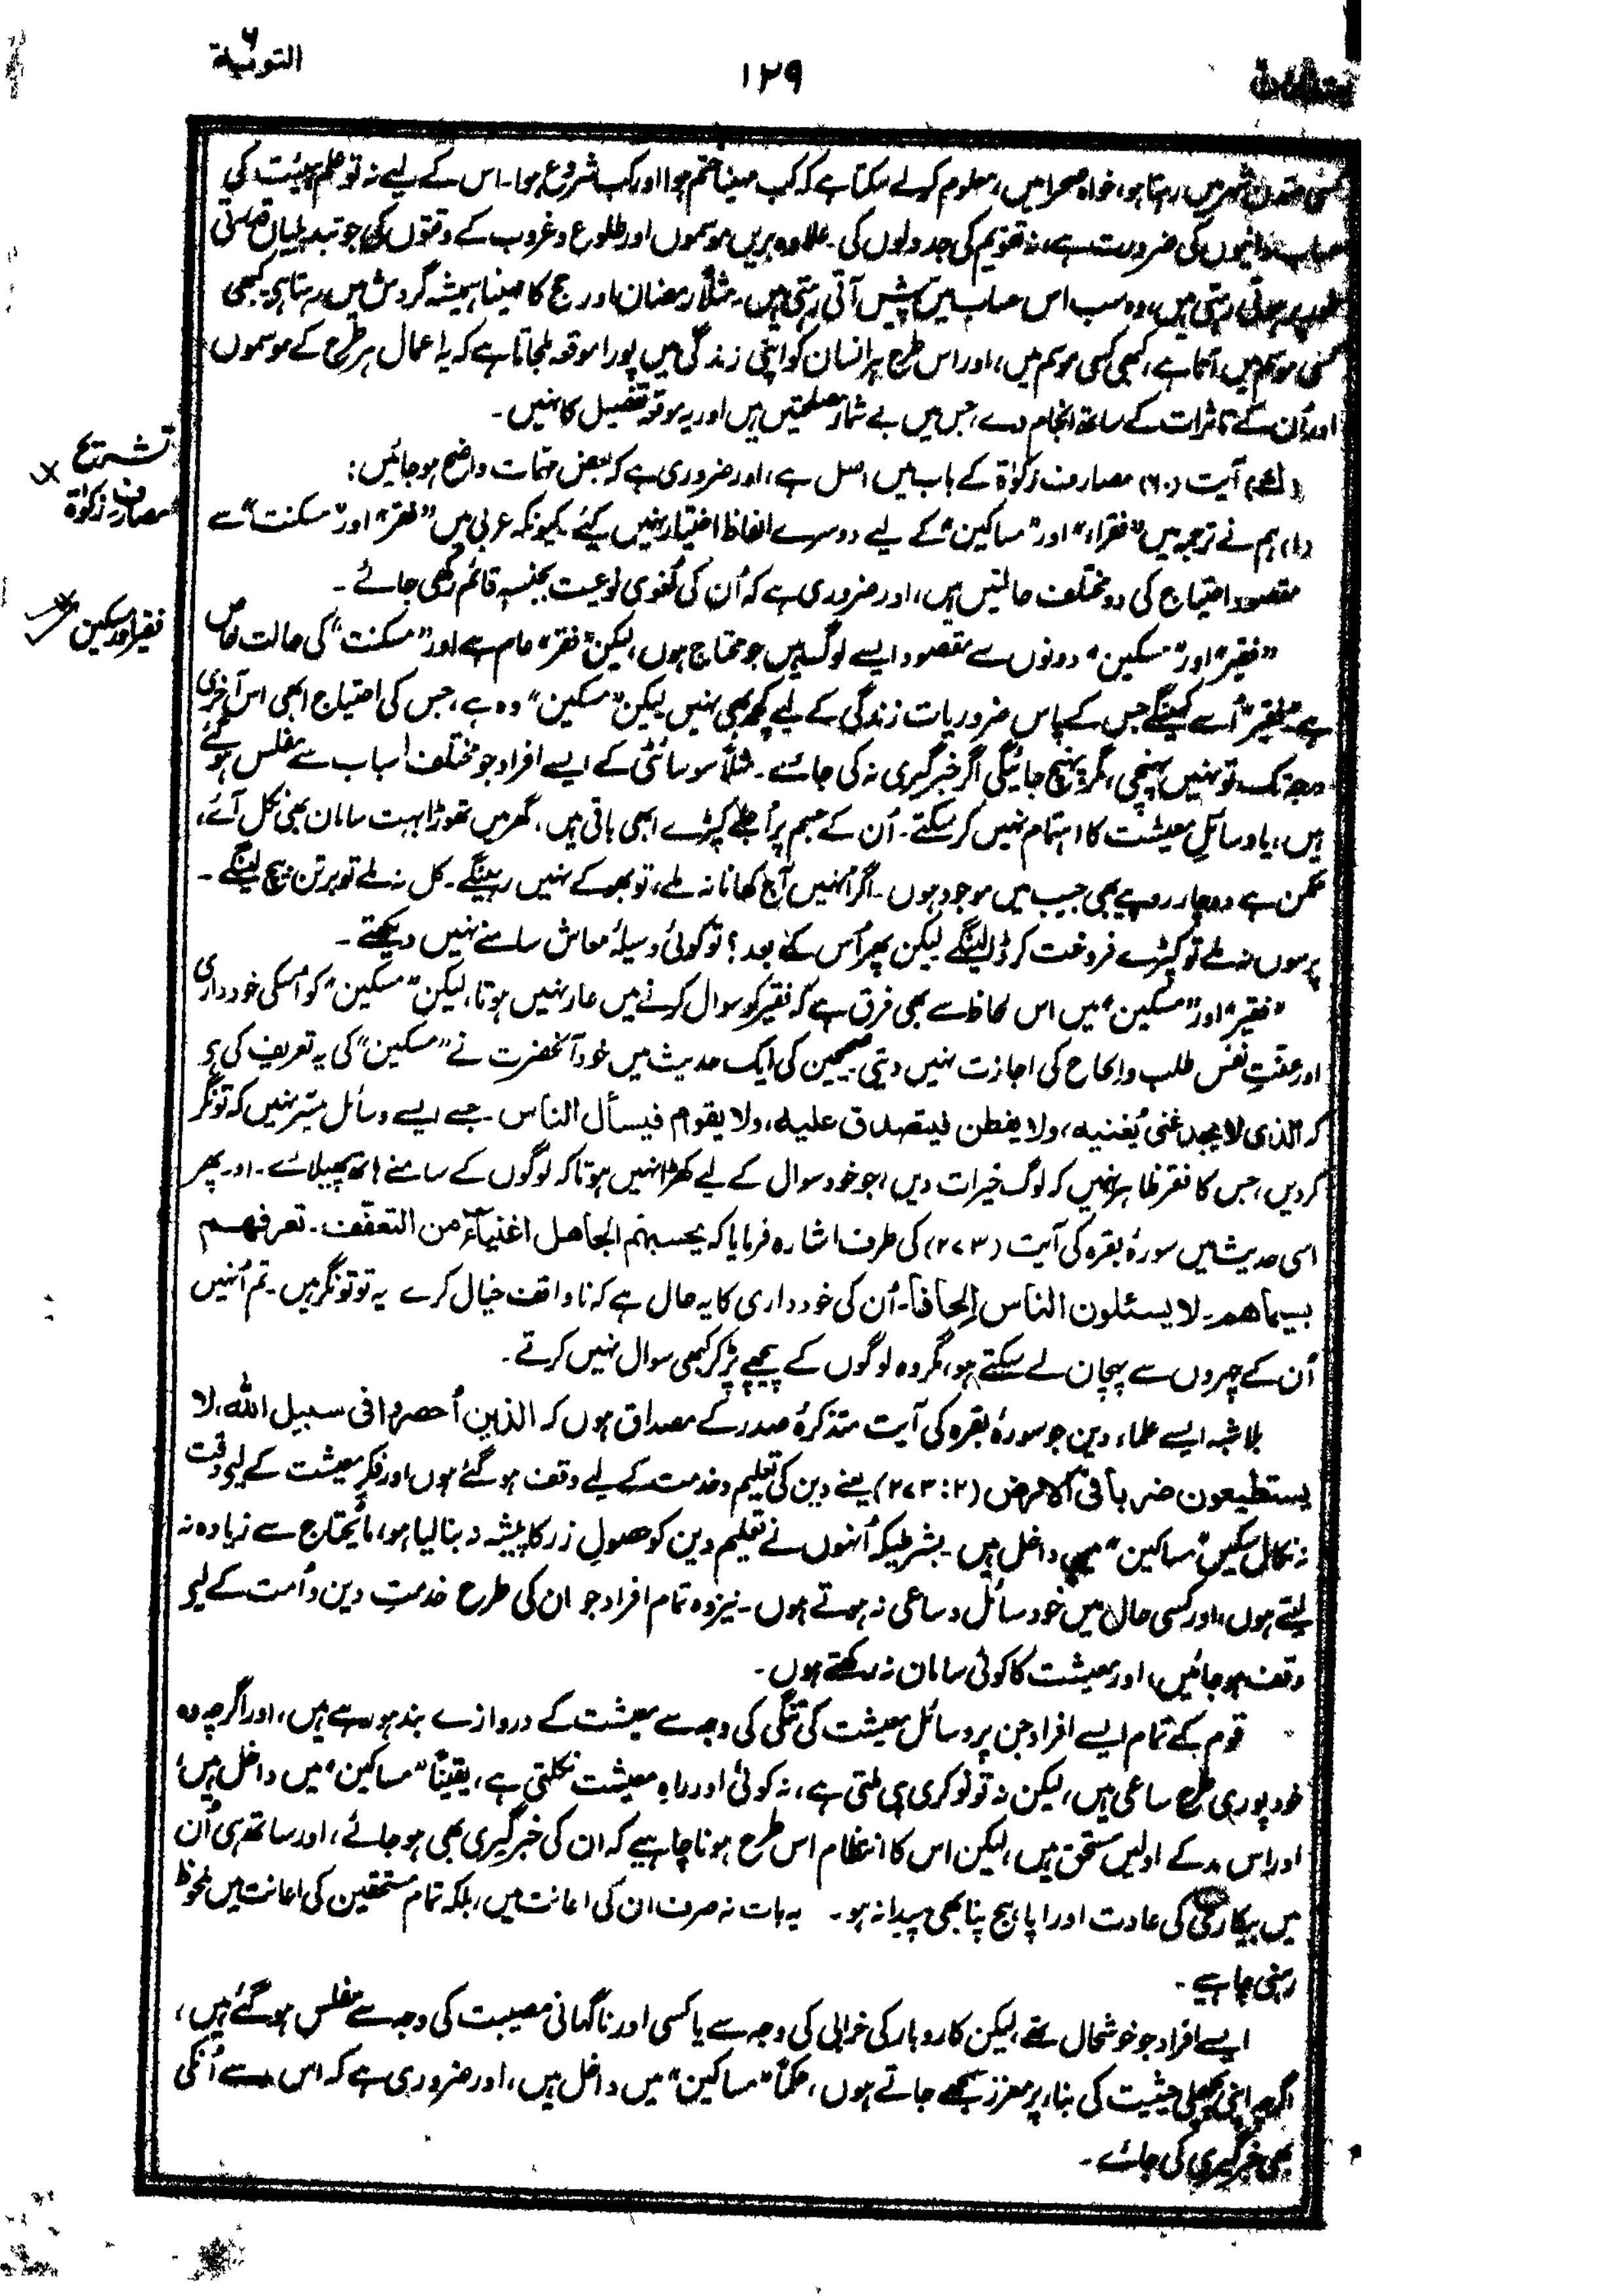 التوبة
۱۲۹
متمدن شہر میں رہتا ہو، خواہ صحرا میں، معلوم کر لے سکتا ہے کہ کب مہینا ختم ہوا اور کب شروع ہوا۔ اس کے لیے نہ تو علم ہیئت کی
حساب دانیوں کی ضرورت ہے، نہ تقویم کی جدولوں کی۔ علاوہ بریں موسموں اور طلوع و غروب کے وقتوں کی جو تبدیلیاں قدرتی
طور پر ہوتی رہتی ہیں، وہ سب اس حساب میں پیش آتی رہتی ہیں۔ مثلاً رمضان اور حج کا مہینا ہمیشہ گردش میں رہتا ہی۔ کبھی
کسی موسم میں آتا ہے، کبھی کسی موسم میں، اور اس طرح ہر انسان کو اپنی زندگی میں پورا موقعہ ملجاتا ہے کہ یہ اعمال ہر طرح کے موسموں
اور اُن کے تاثرات کے ساتھ انجام دے، جس میں بے شمار مصلحتیں ہیں اور یہ موقعہ تفصیل کا نہیں۔
تشریع
مصارف زکوٰة
آیت (۶۰) مصارف زکوٰة کے باب میں اصل ہے، اور ضروری ہے کہ بعض مہمات واضح ہو جائیں:
(۱) ہم نے ترجمہ میں "فقراء" اور "مساکین" کے لیے دوسرے الفاظ اختیار نہیں کیے۔ کیونکہ عربی میں "فقر" اور "مسکنت" سے
مقصود احتیاج کی دو مختلف حالتیں ہیں، اور ضروری ہے کہ اُن کی لُغوی نوعیت بجنسہٖ قائم رکھی جائے۔
فقیر اور مسکین
"فقیر" اور "مسکین" دونوں سے مقصود ایسے لوگ ہیں جو محتاج ہوں، لیکن "فقر" عام ہے اور "مسکنت" کی حالت خاص
ہے۔ "فقیر" اُسے کہینگے جس کے پاس ضروریات زندگی کے لیے کچھ بھی نہیں لیکن "مسکین" وہ ہے، جس کی احتیاج ابھی اس آخری
درجہ تک تو نہیں پہنچی، مگر پہنچ جائیگی اگر خبر گیری نہ کی جائے۔ مثلاً سوسائٹی کے ایسے افراد جو مختلف اسباب سے مفلس ہو گئے
ہیں، یا وسائلِ معیشت کا اہتمام نہیں کر سکتے۔ اُن کے جسم پر اُجلے کپڑے ابھی باقی ہیں، گھر میں تھوڑا بہت سامان بھی نکل آئے،
ممکن ہے دو چار روپیے بھی جیب میں موجود ہوں۔ اگر انہیں آج کھانا نہ ملے، تو بھوکے نہیں رہینگے۔ کل نہ ملے تو برتن بیچ لینگے۔
پرسوں نہ ملے تو کپڑے فروخت کر ڈالینگے لیکن پھر اُس کے بعد؟ تو کوئی وسیلۂ معاش سامنے نہیں دیکھتے۔
"فقیر" اور "مسکین" میں اس لحاظ سے بھی فرق ہے کہ فقیر کو سوال کرنے میں عار نہیں ہوتا، لیکن "مسکین" کو اسکی خودداری
اور عفتِ نفس طلب و الحاح کی اجازت نہیں دیتی۔ صحیحین کی ایک حدیث میں خود آنحضرت نے "مسکین" کی یہ تعریف کی ہی
کہ الذی لا یجد غنی یُغنیه، ولا یفطن فیتصدق علیه، ولا یقوم فیسأل الناس۔ جسے ایسے وسائل میسر نہیں کہ تونگر
کر دیں، جس کا فقر ظاہر نہیں کہ لوگ خیرات دیں، جو خود سوال کے لیے کھڑا نہیں ہوتا کہ لوگوں کے سامنے ہاتھ پھیلائے۔ اور پھر
اسی حدیث میں سورۂ بقرہ کی آیت (۲۷۳) کی طرف اشارہ فرمایا کہ یحسبهم الجاهل اغنیاء من التعفف۔ تعرفهم
بسیماهم۔ لا یسئلون الناس إلحافاً۔ اُن کی خودداری کا یہ حال ہے کہ ناواقف خیال کرے یہ تو تونگر ہیں۔ تم اُنہیں
اُن کے چہروں سے پہچان لے سکتے ہو، مگر وہ لوگوں کے پیچھے پڑ کر کبھی سوال نہیں کرتے۔
بلا شبہ ایسے علماء دین جو سورۂ بقرہ کی آیت متذکرۂ صدر کے مصداق ہوں کہ الذین اُحصروا فی سبیل الله، لا
یستطیعون ضرباً فی الارض (۲:۲۷۳) یعنے دین کی تعلیم و خدمت کے لیے وقف ہو گئے ہوں اور فکرِ معیشت کے لیے وقت
نہ نکال سکیں "مساکین" میں داخل ہیں۔ بشرطیکہ اُنہوں نے تعلیم دین کو حصولِ زر کا پیشہ نہ بنا لیا ہو، مایُحتاج سے زیادہ نہ
لیتے ہوں، اور کسی حال میں خود سائل و ساعی نہ ہوتے ہوں۔ نیز وہ تمام افراد جو ان کی طرح خدمتِ دین و اُمت کے لیے
وقف ہو جائیں، اور معیشت کا کوئی سامان نہ رکھتے ہوں۔
قوم کے تمام ایسے افراد جن پر وسائل معیشت کی تنگی کی وجہ سے معیشت کے دروازے بند ہو رہے ہیں، اور اگرچہ وہ
خود پوری طرح ساعی ہیں، لیکن نہ تو نوکری ہی ملتی ہے، نہ کوئی اور راہِ معیشت نکلتی ہے، یقیناً "مساکین" میں داخل ہیں،
اور اس مد کے اولین مستحق ہیں، لیکن اس کا انتظام اس طرح ہونا چاہیے کہ ان کی خبر گیری بھی ہو جائے، اور ساتھ ہی اُن
میں بیکاری کی عادت اور اپاہج پنا بھی پیدا نہ ہو۔ یہ بات نہ صرف ان کی اعانت میں، بلکہ تمام مستحقین کی اعانت میں ملحوظ
رہنی چاہیے۔
ایسے افراد جو خوشحال تھے، لیکن کاروبار کی خرابی کی وجہ سے یا کسی اور ناگہانی مصیبت کی وجہ سے مفلس ہو گئے ہیں،
اگرچہ اپنی پچھلی حیثیت کی بناء پر معزز سمجھے جاتے ہوں، حکماً "مساکین" میں داخل ہیں، اور ضروری ہے کہ اس سے اُنکی
بھی خبر گیری کی جائے۔